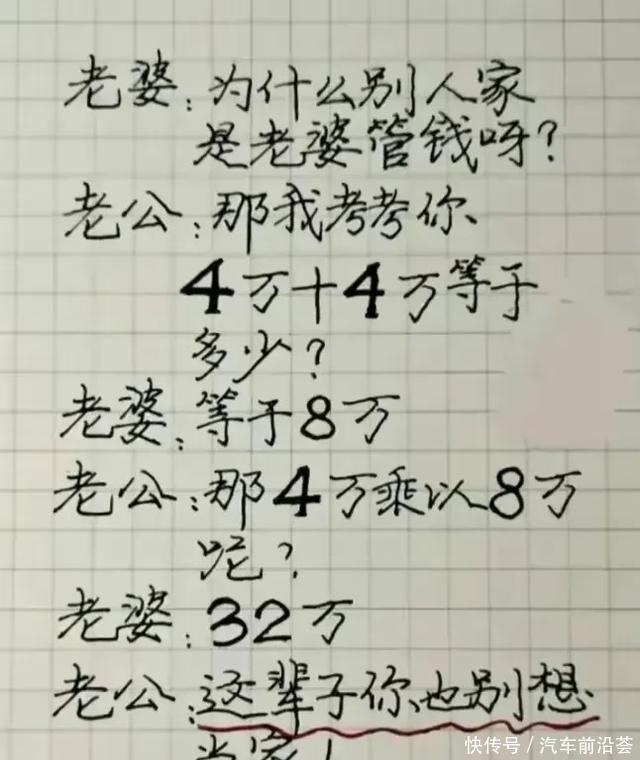 老婆：为什么别人家
是老婆管钱呀？
老公：那我考考你、
4万十4万等于
多少？
老婆：等于8万
老公：那4万乘以8万
呢？
老婆：32万
老公：这辈子你也别想
当家！
快传号／汽车前沿荟